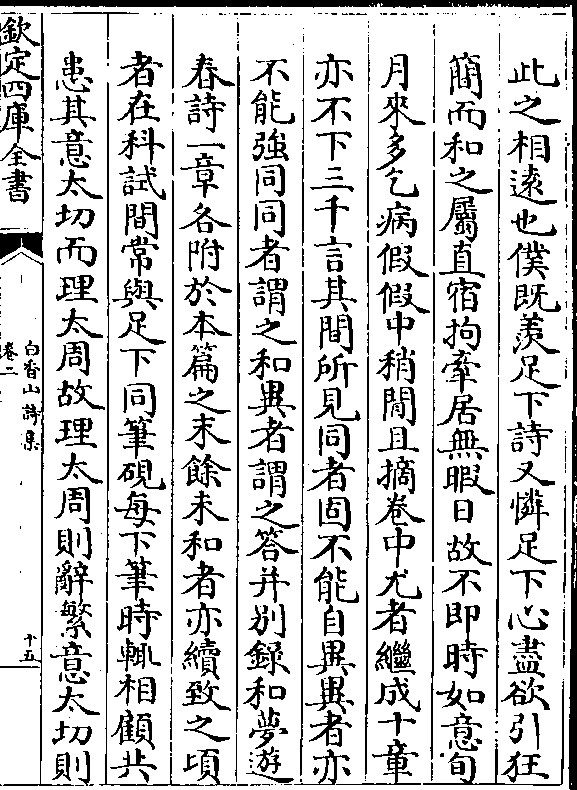 此之相遠也僕既羨足下詩又憐足下心盡欲引狂
簡而和之屬直宿拘牽居無暇日故不即時如意旬
月來多乞病假假中稍閒且摘卷中尤者繼成十章
亦不下三千言其間所見同者固不能自異異者亦
不能強同同者謂之和異者謂之答并别錄和夢遊
春詩一章各附於本篇之末餘未和者亦續致之頃
者在科試間常與足下同筆硯每下筆時輒相顧共
患其意太切而理太周故理太周則辭繁意太切則
欽定四庫全書
白香山詩集
卷二
十五